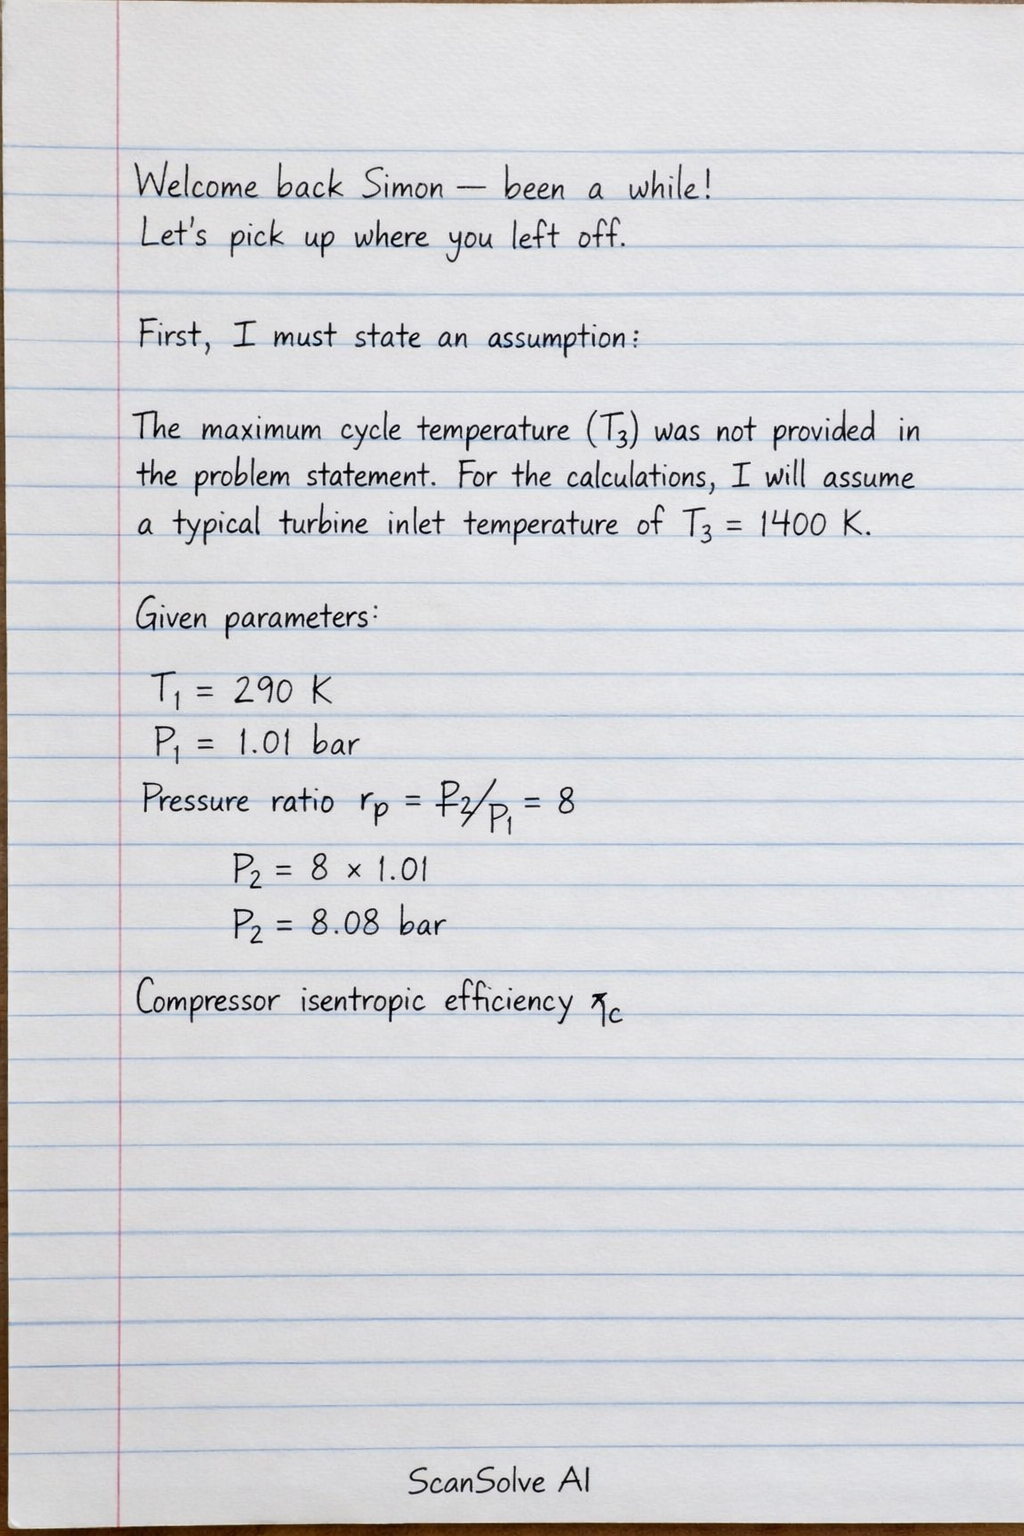 Welcome back Simon — been a while!
Let's pick up where you left off.
First, I must state an assumption:
The maximum cycle temperature (T₃) was not provided in
the problem statement. For the calculations, I will assume
a typical turbine inlet temperature of T₃ = 1400 K.
Given parameters:
T₁ = 290 K
P₁ = 1.01 bar
Pressure ratio rₚ = P₂/P₁ = 8
P₂ = 8 × 1.01
P₂ = 8.08 bar
Compressor isentropic efficiency η_c
ScanSolve AI